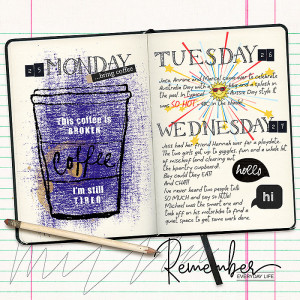 25 MONDAY
...bring coffee
This coffee is
BROKEN
Coffee
I'm still
TIRED
TUESDAY 26
Jess, Annone and Marcel came to celebrate
Australia Day with a BBQ and a splash in
the pool. In typical Aussie Day style it
was SO HOT in the shade!
WEDNESDAY 27
Jess had her friend Hannah over for a playdate.
The two girls got up to giggles, fun and a whole lot
of mischief (and clearing out
the pantry cupboard.
Boy could they EAT!
And CHAT!
I've never heard two people talk
SO MUCH and say so little!
Michael was the smart one and
took off on his motorbike to find a
quiet spot to get some work done.
hello
hi
Remember
EVERYDAY LIFE